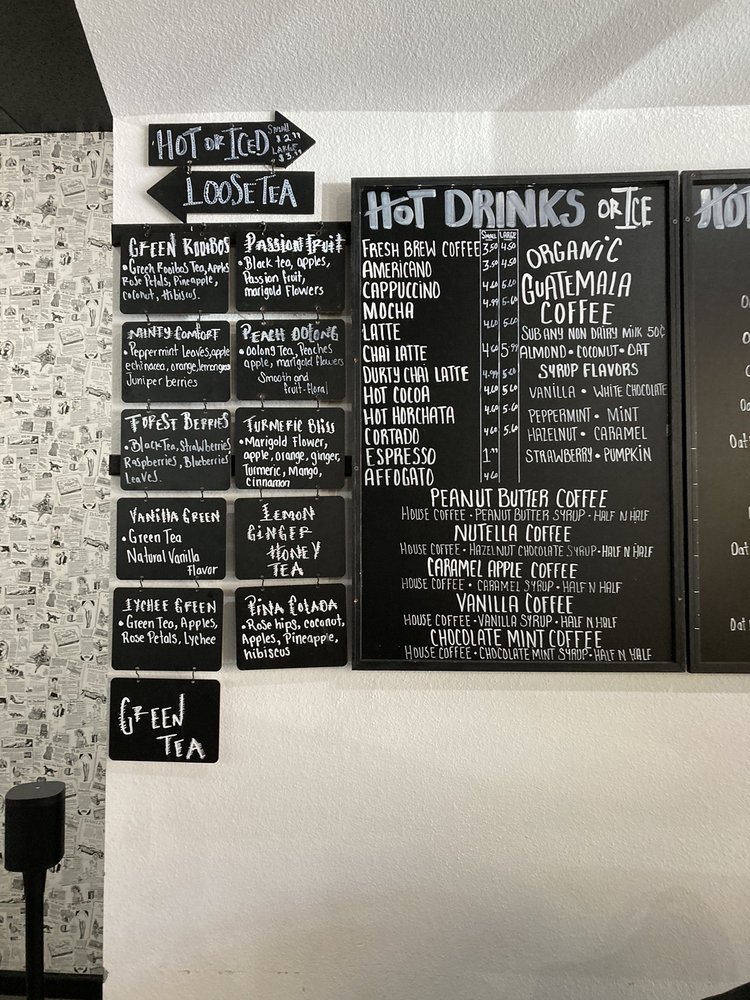 HOT OR ICED
SMALL
$2.99
LARGE
LOOSE TEA
GREEN ROOIBOS
• Green Rooibos Tea, Apples
Rose Petals, Pineapple,
Coconut, Hibiscus.
PASSION FRUIT
• Black tea, apples,
Passion fruit,
marigold flowers
MINTY COMFORT
• Peppermint leaves, apple
echinacea, orange, lemongrass
Juniper berries
PEACH OOLONG
• Oolong Tea, Peaches
apple, marigold flowers
Smooth and
fruit-floral
FOREST BERRIES
• Black Tea, Strawberries
Raspberries, Blueberries
Leaves.
TURMERIC BLISS
• Marigold flower,
apple, orange, ginger,
Turmeric, Mango,
Cinnamon
VANILLA GREEN
• Green Tea
Natural Vanilla
Flavor
LEMON
GINGER
HONEY
TEA
LYCHEE GREEN
• Green Tea, Apples,
Rose Petals, Lychee
PINA COLADA
• Rose hips, coconut,
Apples, Pineapple,
hibiscus
GREEN
TEA
HOT DRINKS OR ICE
SMALL LARGE
FRESH BREW COFFEE 3.50 4.50
AMERICANO 3.50 4.50
CAPPUCCINO 4.60 5.60
MOCHA 4.99
LATTE 4.60 5.60
CHAI LATTE 4.60 5.99
DURTY CHAI LATTE 4.99
HOT COCOA 4.60 5.60
HOT HORCHATA 4.60 5.60
CORTADO 4.60 5.60
ESPRESSO 1.99
AFFOGATO 4.60
ORGANIC
GUATEMALA
COFFEE
SUB ANY NON DAIRY MILK 50¢
ALMOND • COCONUT • OAT
SYRUP FLAVORS
VANILLA • WHITE CHOCOLATE
PEPPERMINT • MINT
HAZELNUT • CARAMEL
STRAWBERRY • PUMPKIN
PEANUT BUTTER COFFEE
HOUSE COFFEE • PEANUT BUTTER SYRUP • HALF N HALF
NUTELLA COFFEE
HOUSE COFFEE • HAZELNUT CHOCOLATE SYRUP • HALF N HALF
CARAMEL APPLE COFFEE
HOUSE COFFEE • CARAMEL SYRUP • HALF N HALF
VANILLA COFFEE
HOUSE COFFEE • VANILLA SYRUP • HALF N HALF
CHOCOLATE MINT COFFEE
HOUSE COFFEE • CHOCOLATE MINT SYRUP • HALF N HALF
HOT
Oat
Oat
Oat